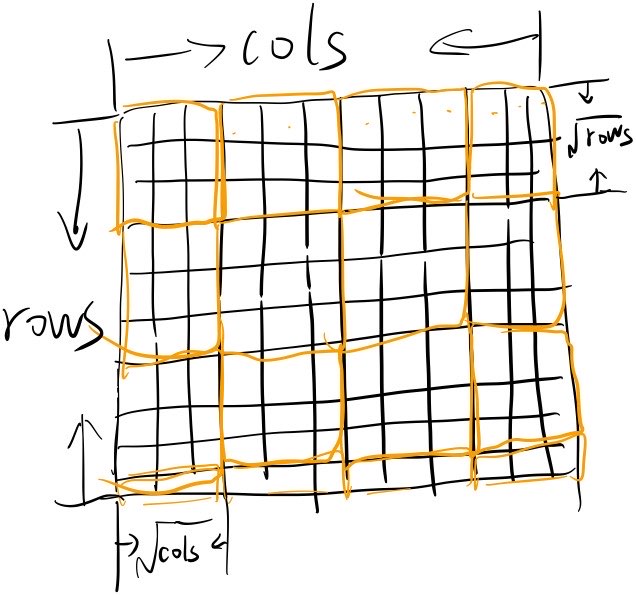 cols
√rows
rows
√cols